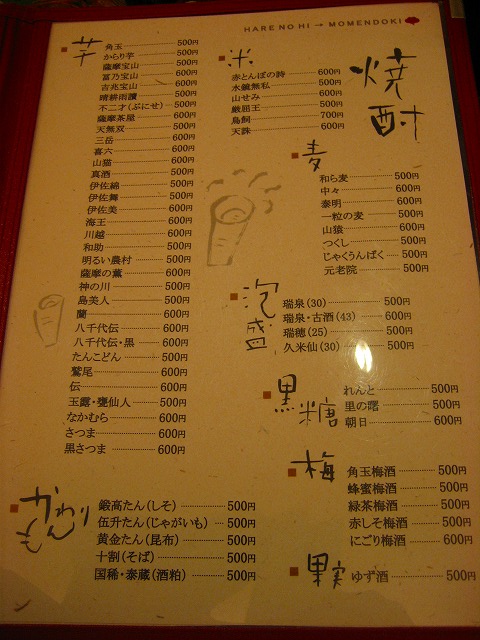 HARE NO HI → MOMENDOKI
焼酎
芋
角玉 500円
からり芋 500円
薩摩宝山 500円
富乃宝山 600円
吉兆宝山 600円
晴耕雨讀 500円
不二才(ぶにせ) 500円
薩摩茶屋 600円
天無双 500円
三岳 600円
喜六 600円
山猫 600円
真酒 500円
伊佐錦 500円
伊佐舞 500円
伊佐美 600円
海王 600円
川越 600円
和助 500円
明るい農村 600円
薩摩の薫 600円
神の川 500円
島美人 500円
蘭 600円
八千代伝 600円
八千代伝・黒 600円
たんこどん 500円
鷲尾 600円
伝 600円
玉露・甕仙人 500円
なかむら 600円
さつま 600円
黒さつま 600円
かわりもん
鍛高たん(しそ) 500円
伍升たん(じゃがいも) 500円
黄金たん(昆布) 500円
十割(そば) 500円
国稀・泰蔵(酒粕) 500円
米
赤とんぼの詩 600円
水鏡無私 500円
山せみ 600円
厳屈王 500円
鳥飼 700円
天誅 600円
麦
和ら麦 500円
中々 600円
泰明 600円
一粒の麦 500円
山猿 600円
つくし 500円
じゃくうんばく 500円
元老院 500円
泡盛
瑞泉(30) 500円
瑞泉・古酒(43) 600円
瑞穂(25) 500円
久米仙(30) 500円
黒糖
れんと 500円
里の曙 500円
朝日 600円
梅
角玉梅酒 500円
蜂蜜梅酒 500円
緑茶梅酒 500円
赤しそ梅酒 500円
にごり梅酒 600円
果実
ゆず酒 500円